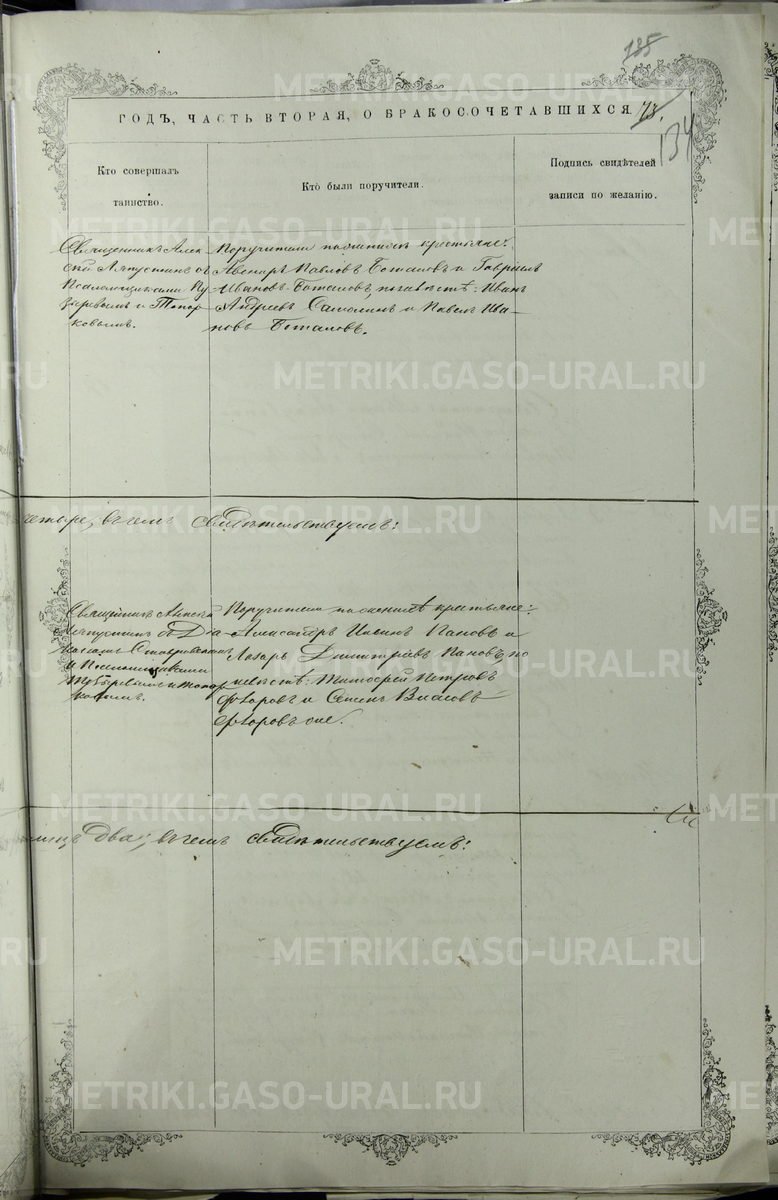 135
ГОДЪ, ЧАСТЬ ВТОРАЯ, О БРАКОСОЧЕТАВШИХСЯ.
134
Кто совершалъ таинство.
Кто были поручители.
Подпись свидѣтелей записи по желанію.
Священникъ Алек
сѣй съ
Псаломщиками Пу
зыревымъ и Топор
ковымъ.
Поручители по женихѣ крестьяне:
Авениръ Павловъ Боталовъ и Гавріилъ
Ивановъ Боталовъ, по невѣстѣ: Иванъ
Андреевъ и Павелъ Ива-
новъ Боталовъ.
четыре; въ чемъ свидѣтельствуемъ:
Священникъ Алексѣй
съ Діа
кономъ
и Псаломщиками
Пузыревымъ и Топор
ковымъ.
Поручители по женихѣ крестьяне:
Александръ Пановъ и
Лазарь Димитріевъ Пановъ, по
невѣстѣ: Тимофей Петровъ
Ѳедоровъ и Семенъ Власовъ
Ѳедоровъ
два; въ чемъ свидѣтельствуемъ:
METRIKI.GASO-URAL.RU